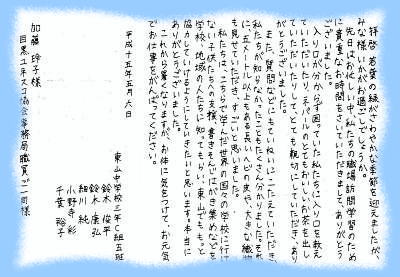 拝啓 若葉の緑がさわやかな季節を迎えましたが、
みな様いかがお過ごしでしょうか。
先日はお忙しい中、私たちの職場訪問学習のため
に貴重なお時間をさいていただきまして、ありがとう
ございました。
入り口が分からず困っていた私たちに入り口を教え
ていただいたり、ネパールのとてもおいしいお茶を出し
ていただいたりと、とても親切にしていただき、あり
がとうございました。
また、質問などにもていねいにこたえていただき、
私たちが知らなかったこともたくさん分かりました。それ
に、五メートル以上もある長いヘビの皮や、大きな織物
も見せていただき、すごいと思いました。
私たちは、こちらで学んだ世界の国々の学校に行け
ない子供たちへの支援、書きそんじはがき集めなどを
学校、地域の人たちに知ってもらい、東山でももっと
協力していけるようにしていきたいと思います。本当に
ありがとうございました。
これから暑くなりますが、お体に気をつけて、お元気
でお仕事をがんばってください。
平成十五年五月六日
東山中学校三年C組五班
鈴木 俊平
鈴木 康弘
細川 純
小野寺 彩
千葉 裕子
加藤 玲子様
目黒ユネスコ協会事務局職員ご一同様